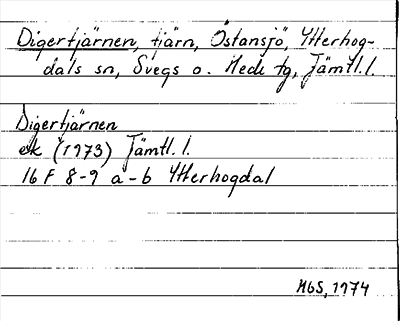 Digertjärnen, tjärn, Östansjö, Ytterhog-
dals sn, Svegs o. Hede tg, Jämtl. l.
Digertjärnen
ek (1973) Jämtl. l.
16 F 8-9 a-b Ytterhogdal
MGS, 1974